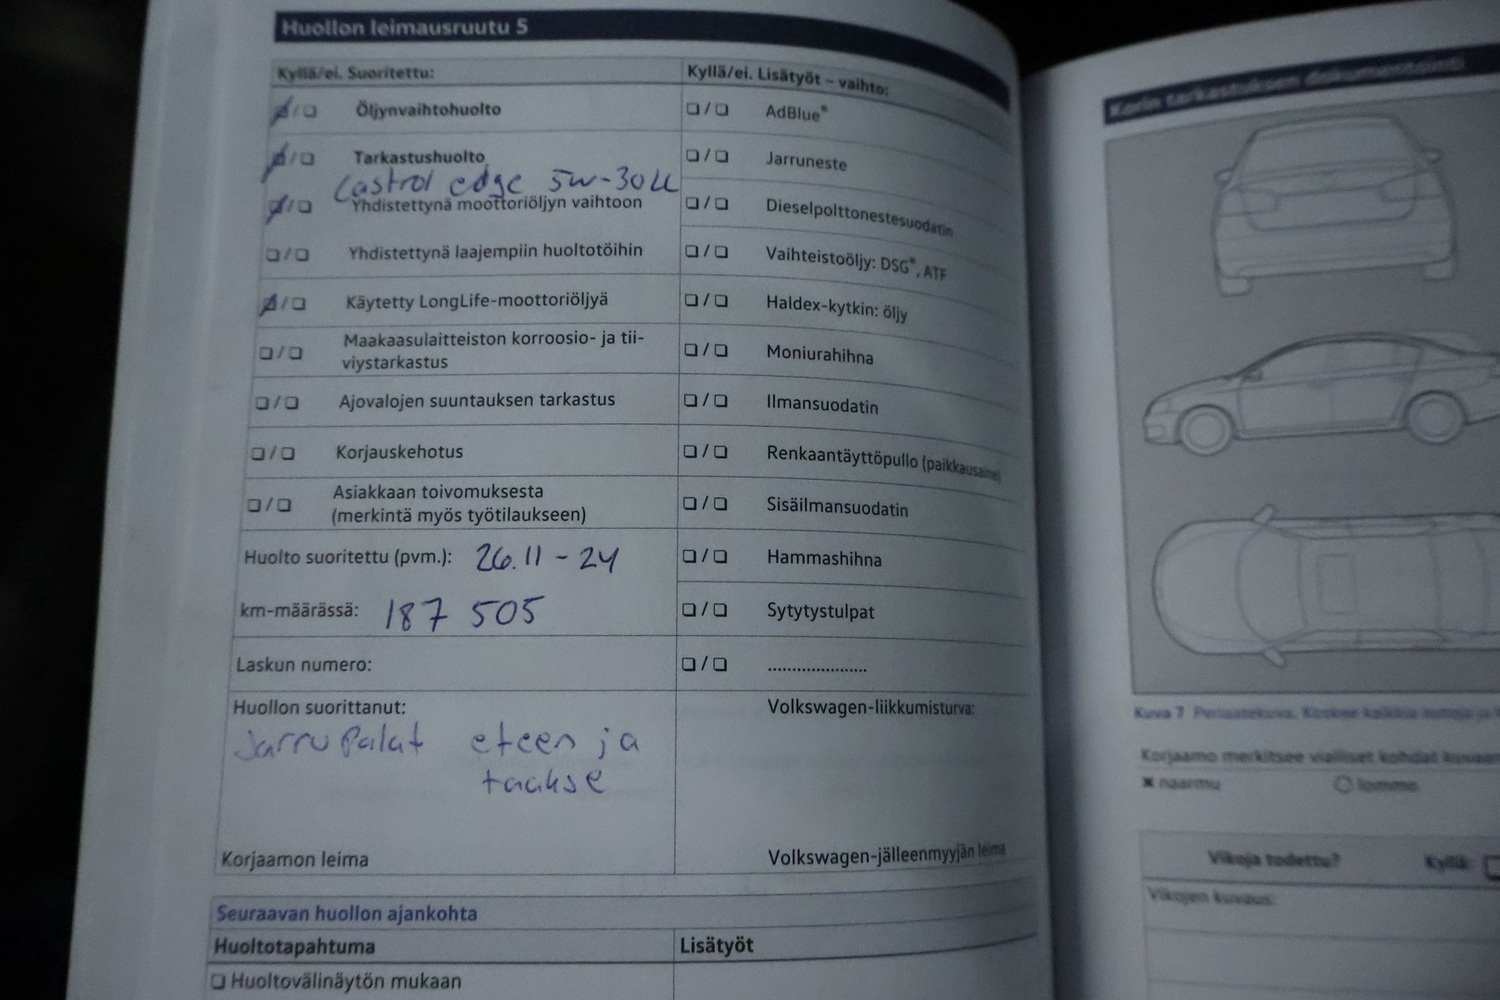 Huollon leimausruutu 5
Kyllä/ei. Suoritettu:
☑/☐ Öljynvaihtohuolto
☑/☐ Tarkastushuolto
Castrol edge 5w-30LL
☑/☐ Yhdistettynä moottoriöljyn vaihtoon
☐/☐ Yhdistettynä laajempiin huoltotöihin
☑/☐ Käytetty LongLife-moottoriöljyä
☐/☐ Maakaasulaitteiston korroosio- ja tii-
viystarkastus
☐/☐ Ajovalojen suuntauksen tarkastus
☐/☐ Korjauskehotus
☐/☐ Asiakkaan toivomuksesta
(merkintä myös työtilaukseen)
Huolto suoritettu (pvm.): 26.11-24
km-määrässä: 187 505
Laskun numero:
Huollon suorittanut:
Jarru Palat eteen ja
taakse
Korjaamon leima
Kyllä/ei. Lisätyöt – vaihto:
☐/☐ AdBlue®
☐/☐ Jarruneste
☐/☐ Dieselpolttonestesuodatin
☐/☐ Vaihteistoöljy: DSG®, ATF
☐/☐ Haldex-kytkin: öljy
☐/☐ Moniurahihna
☐/☐ Ilmansuodatin
☐/☐ Renkaantäyttöpullo (paikkausaine)
☐/☐ Sisäilmansuodatin
☐/☐ Hammashihna
☐/☐ Sytytystulpat
☐/☐ .....................
Volkswagen-liikkumisturva:
Volkswagen-jälleenmyyjän leima
Seuraavan huollon ajankohta
Huoltotapahtuma
Lisätyöt
☐ Huoltovälinäytön mukaan
Korin tarkastuksen dokumentointi
Kuva 7 Periaatekuva. Koskee kaikkia autoja ja
Korjaamo merkitsee vialliset kohdat kuvaan
✖ naarmu
○ lommo
Vikoja todettu? Kyllä: ☐
Vikojen kuvaus: